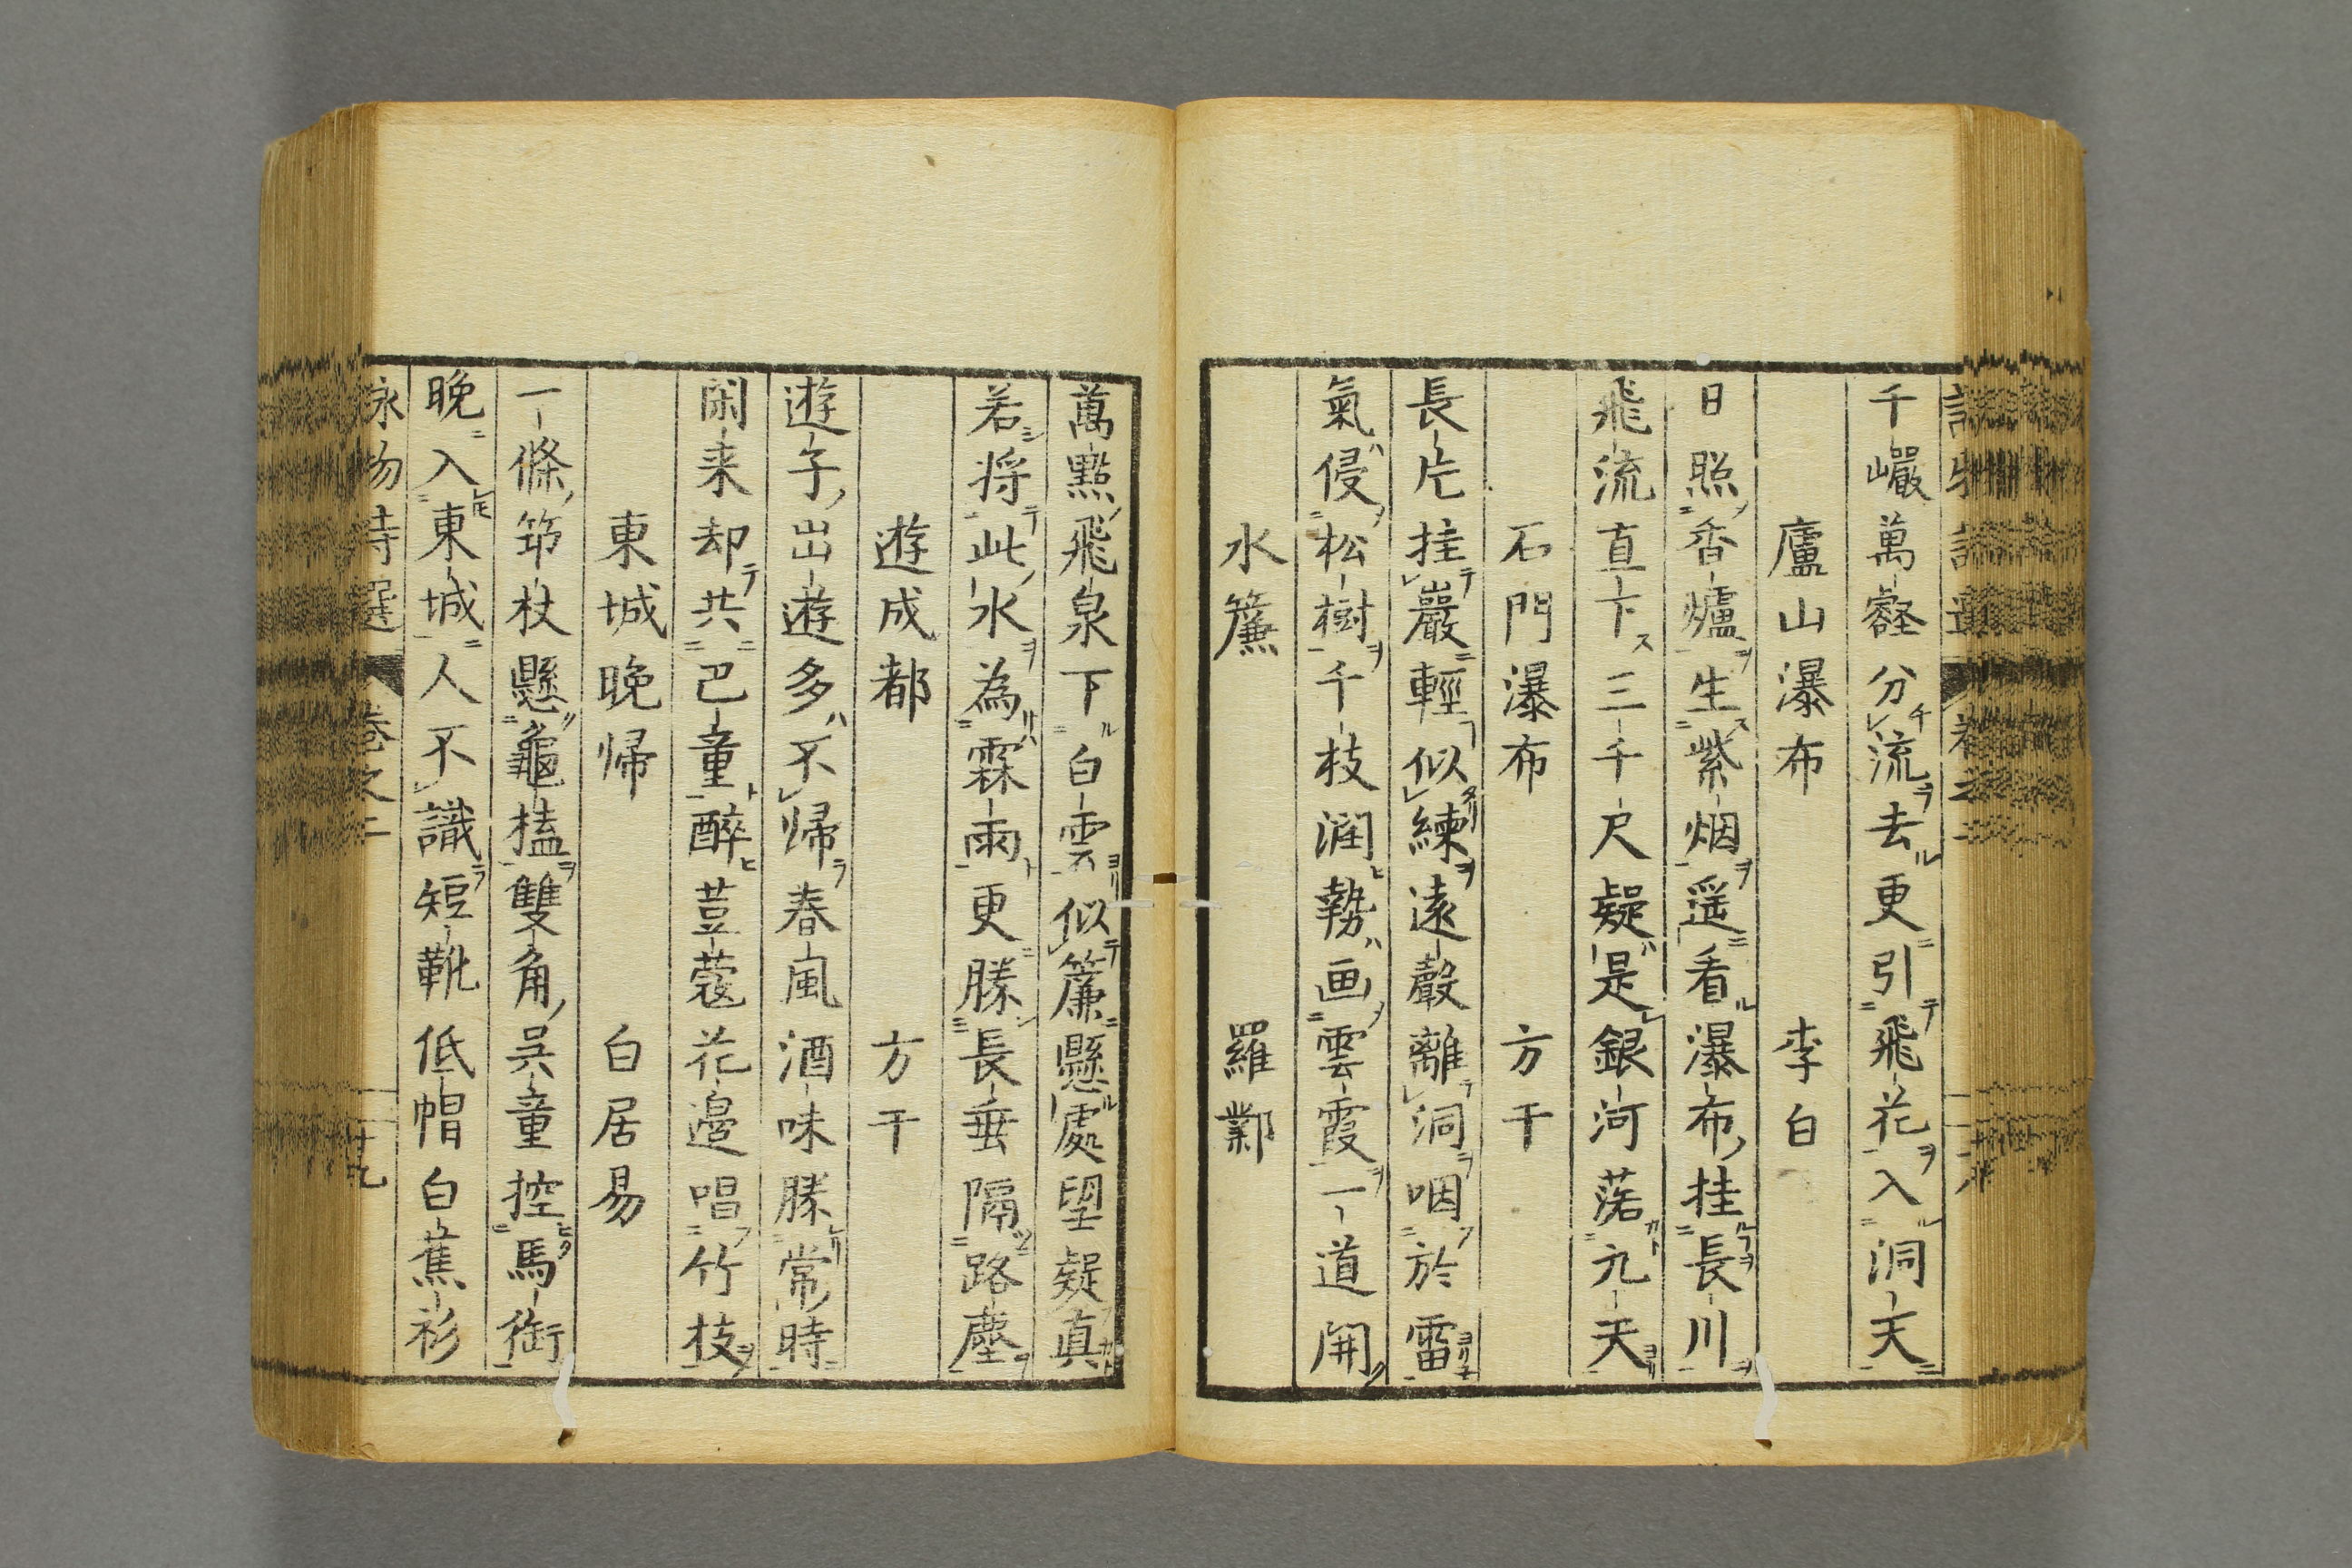 千巗萬壑分流去更引飛花入洞天
廬山瀑布 李白
日照香爐生紫烟遥看瀑布挂長川
飛流直下三千尺疑是銀河落九天
石門瀑布 方干
長片挂巖輕似練遠聲離洞咽於雷
氣侵松樹千枝潤勢画雲霞一道開
水簾 羅鄴
萬點飛泉下白雲似簾懸處望疑真
若将此水為霖雨更勝長垂隔路塵
遊成都 方干
遊子出遊多不帰春風酒味勝常時
閑来却共巴童醉荳蔻花邉唱竹枝
東城晩帰 白居易
一條筇杖懸龜榼雙角呉童控馬銜
晩入東城人不識短靴低帽白蕉衫
詠物詩選 巻之二 十九